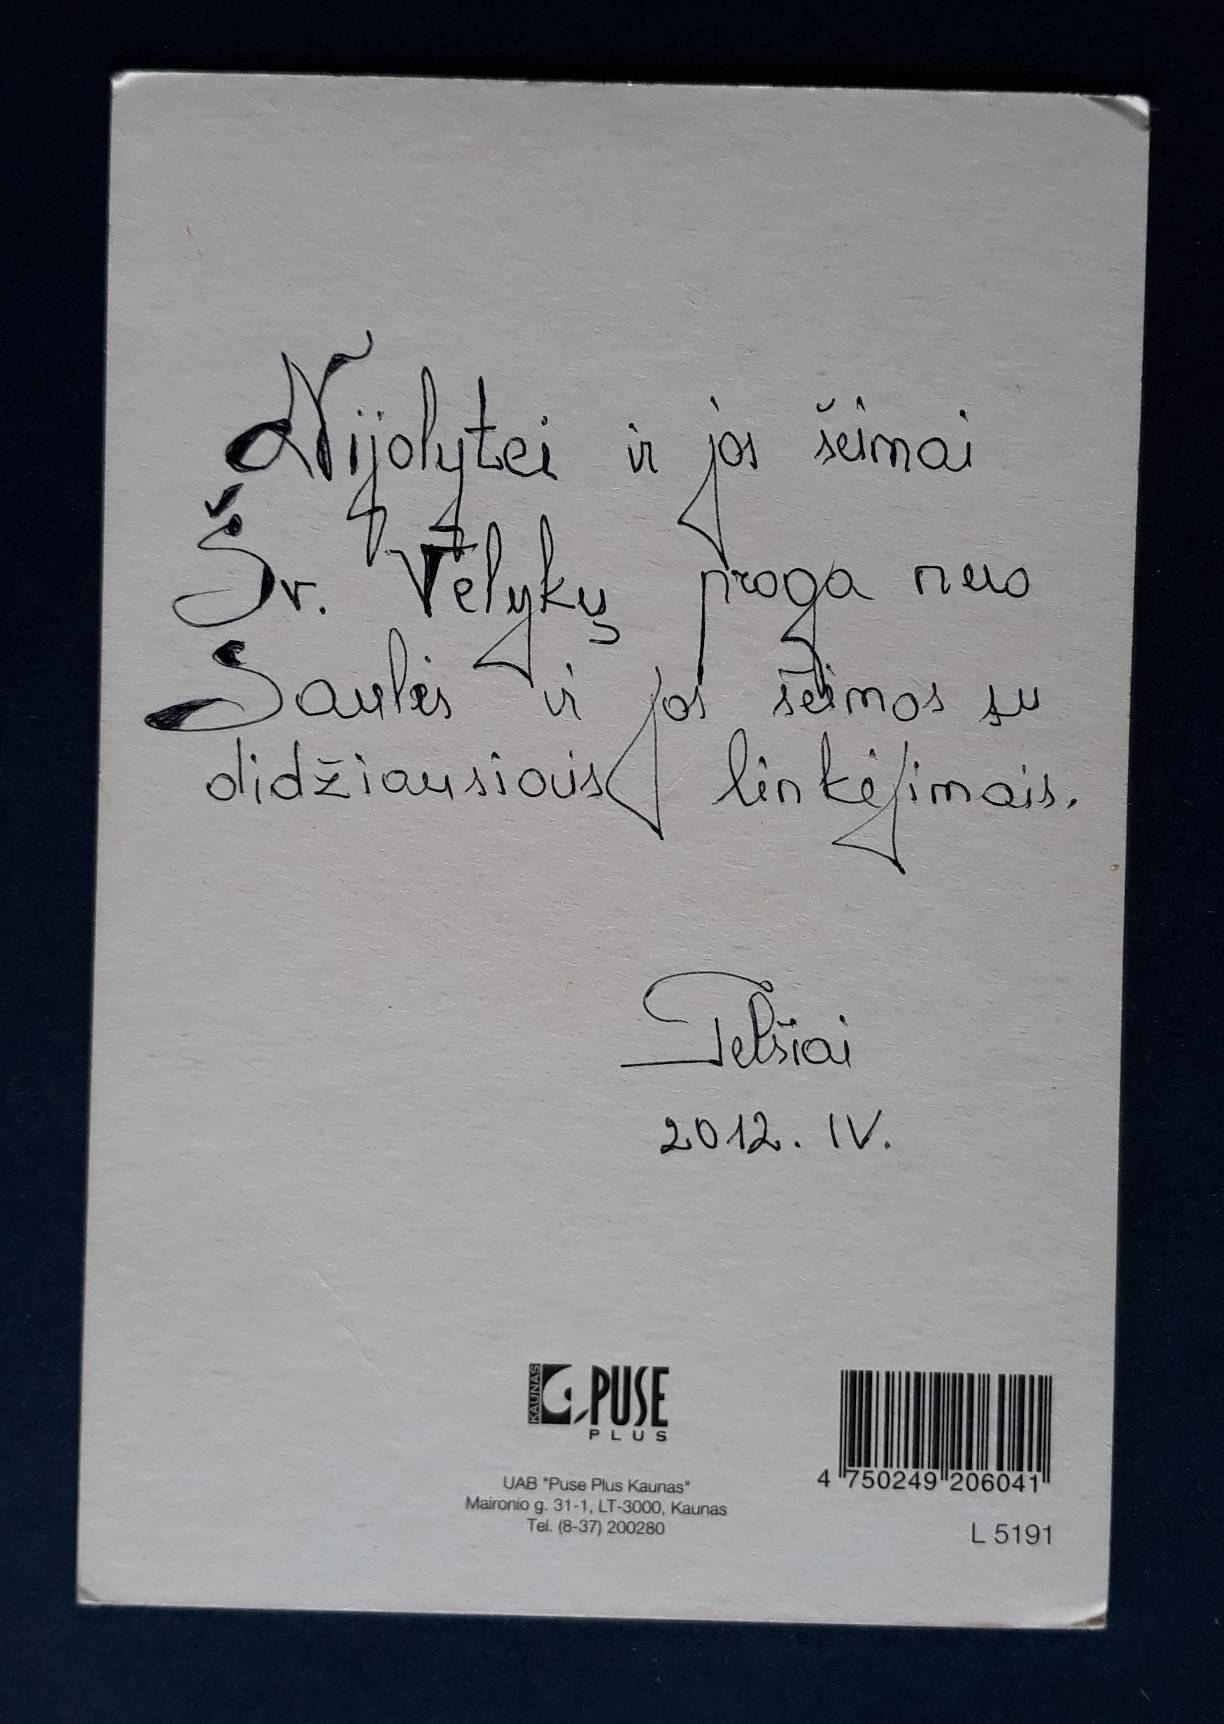 Nijolytei ir jos šeimai
Šv. Velykų proga nuo
Saulės ir jos šeimos su
didžiausiais linkėjimais.
Telšiai
2012. IV.
KAUNAS
PUSE
PLUS
UAB "Puse Plus Kaunas"
Maironio g. 31-1, LT-3000, Kaunas
Tel. (8-37) 200280
4 750249 206041
L 5191